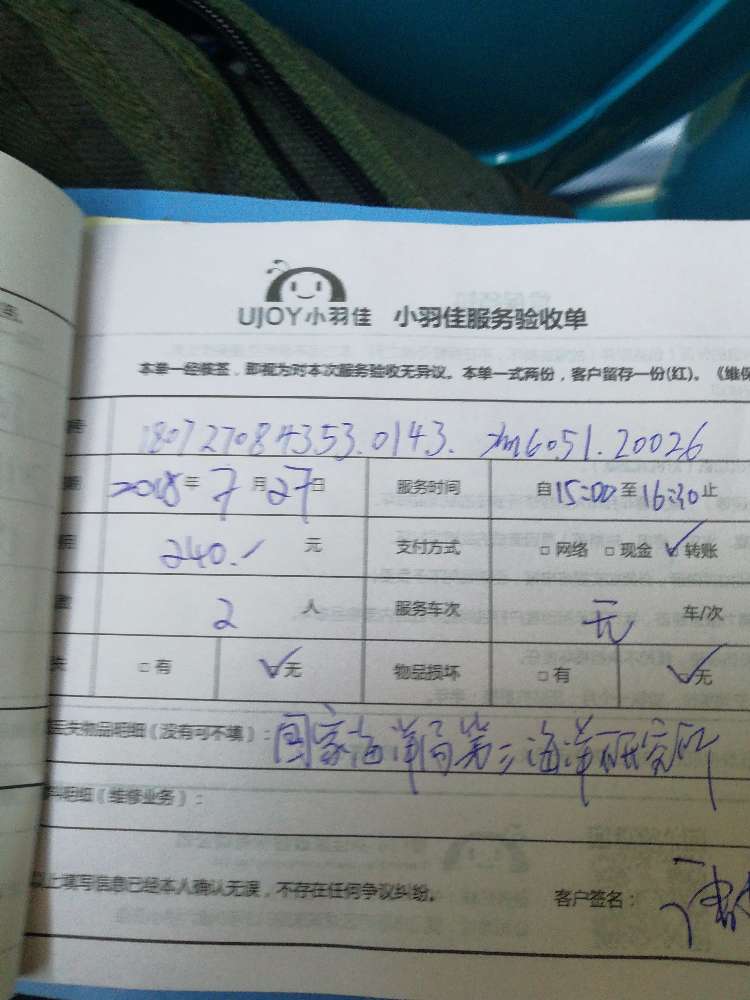 UJOY小羽佳 小羽佳服务验收单
本单一经核签，即视为对本次服务验收无异议。本单一式两份，客户留存一份(红)。《维保
号 180727084353.0143. 20026
期 2018年7月27日 服务时间 自15:00至16:30止
用 240.- 元 支付方式 □ 网络 □ 现金 ☑ 转账
数 2 人 服务车次 无 车/次
失 □ 有 ☑ 无 物品损坏 □ 有 ☑ 无
丢失物品明细（没有可不填）：国家海洋局第三海洋研究所
料明细（维修业务）：
以上填写信息已经本人确认无误，不存在任何争议纠纷。 客户签名：